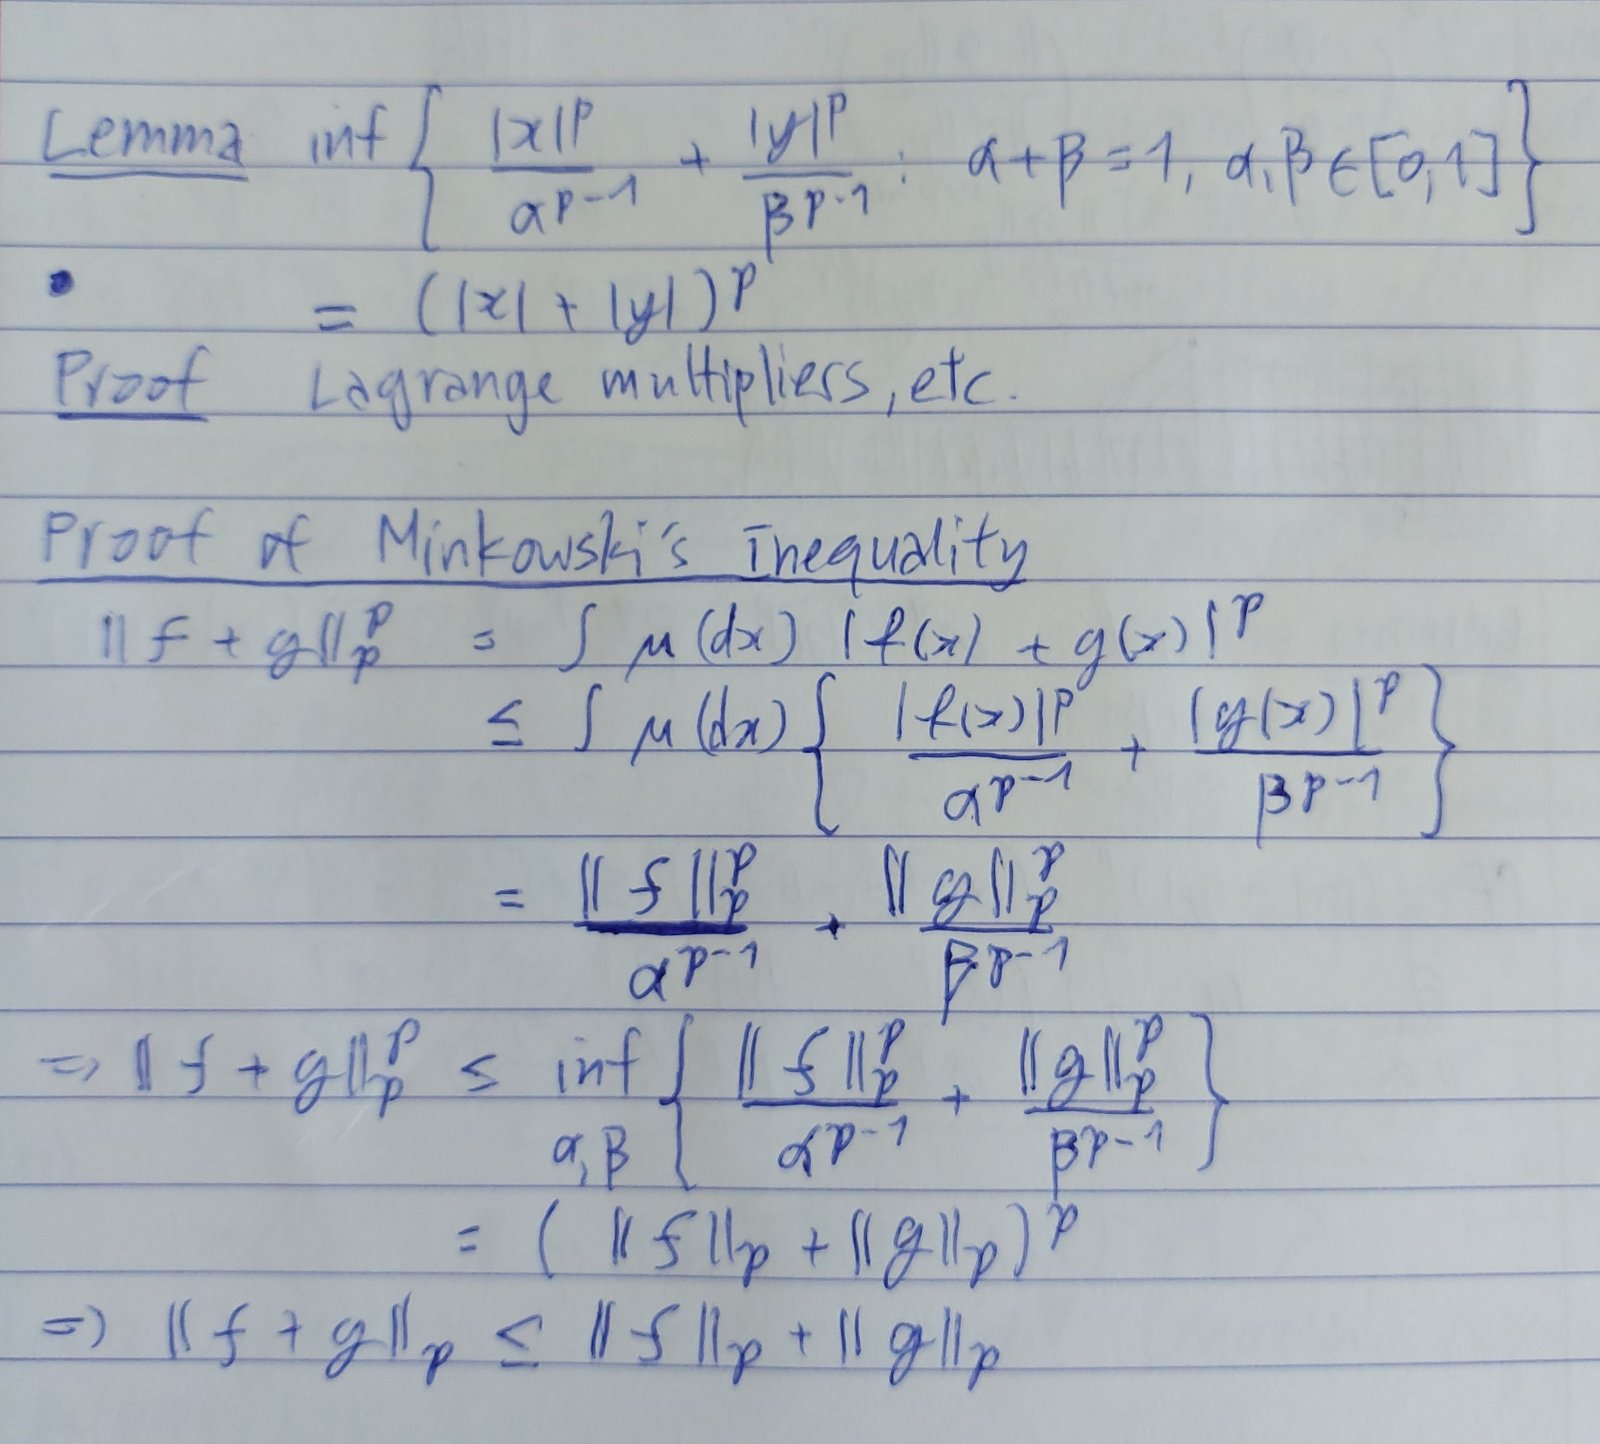 Lemma inf { |x|^p / α^{p-1} + |y|^p / β^{p-1} : α+β=1, α,β∈[0,1] }
= (|x| + |y|)^p
Proof Lagrange multipliers, etc.
Proof of Minkowski's Inequality
‖f + g‖_p^p = ∫ μ(dx) |f(x) + g(x)|^p
≤ ∫ μ(dx) { |f(x)|^p / α^{p-1} + |g(x)|^p / β^{p-1} }
= ‖f‖_p^p / α^{p-1} + ‖g‖_p^p / β^{p-1}
⇒ ‖f + g‖_p^p ≤ inf_{α,β} { ‖f‖_p^p / α^{p-1} + ‖g‖_p^p / β^{p-1} }
= (‖f‖_p + ‖g‖_p)^p
⇒ ‖f + g‖_p ≤ ‖f‖_p + ‖g‖_p